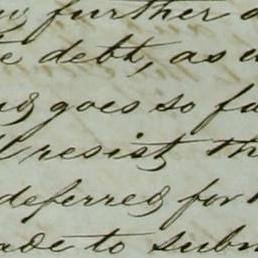 further
debt, as
goes so fa
resist th
deferred for
ade to subm